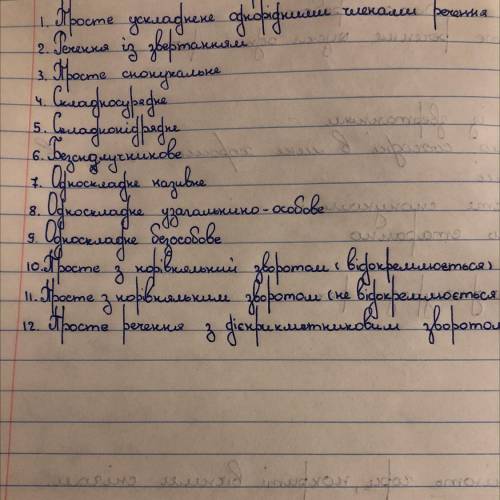 1. Просте ускладнене однорідними членами речення
2. Речення із звертанням
3. Просте спонукальне
4. Складносурядне
5. Складнопідрядне
6. Безсполучникове
7. Односкладне називне
8. Односкладне узагальнино-особове
9. Односкладне безособове
10. Просте з порівняльний зворотом (відокремлюється)
11. Просте з порівняльним зворотом (не відокремлюється
12. Просте речення з дієприкметниковим зворотом